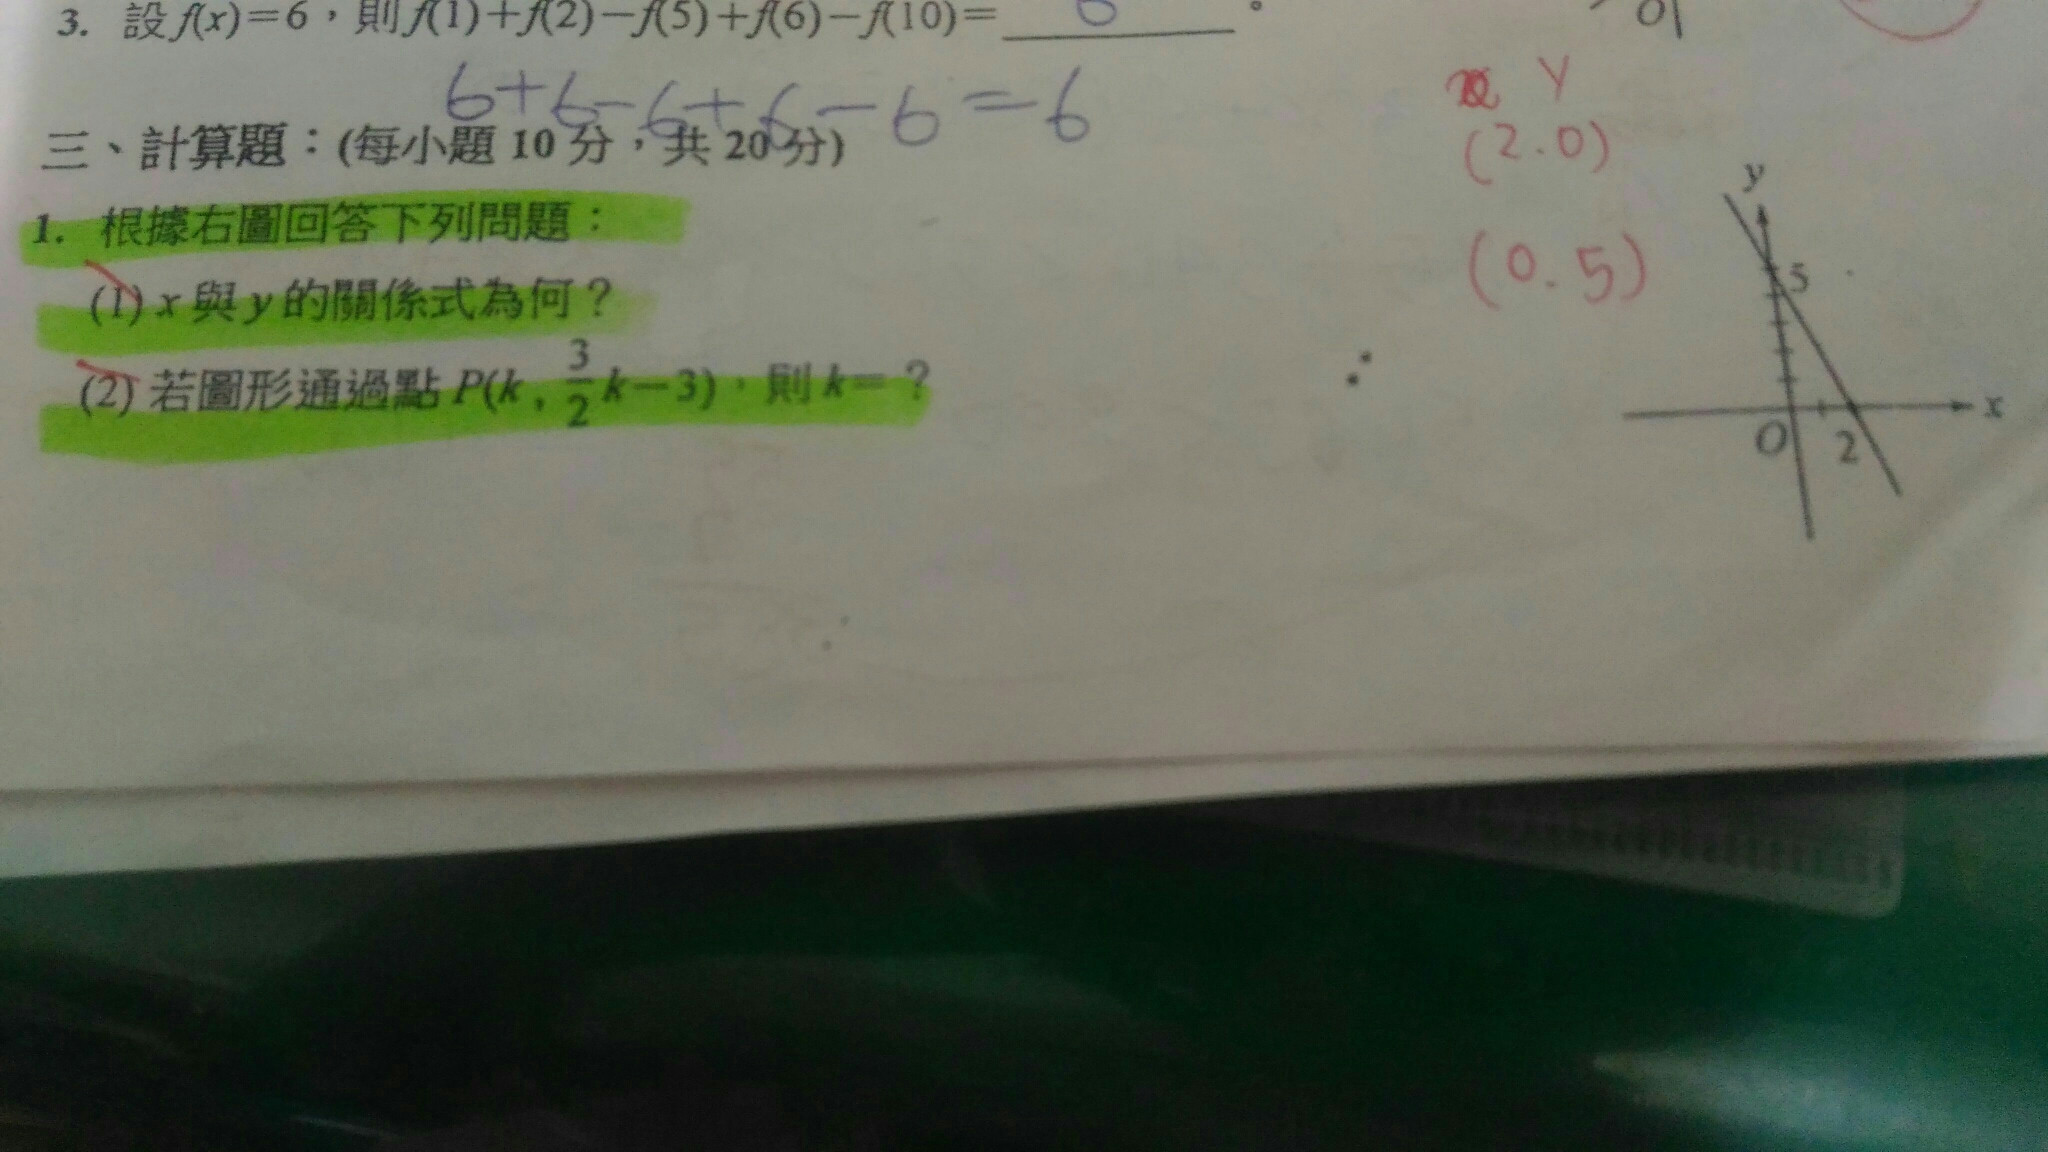 3. 設 f(x)=6,則 f(1)+f(2)-f(5)+f(6)-f(10)= 6 。
6+6-6+6-6=6
三、計算題:(每小題 10 分,共 20 分)
1. 根據右圖回答下列問題:
(1) x 與 y 的關係式為何?
(2) 若圖形通過點 P(k, 3/2 k-3),則 k=?
x Y
(2.0)
(0.5)
y
5
x
O
2